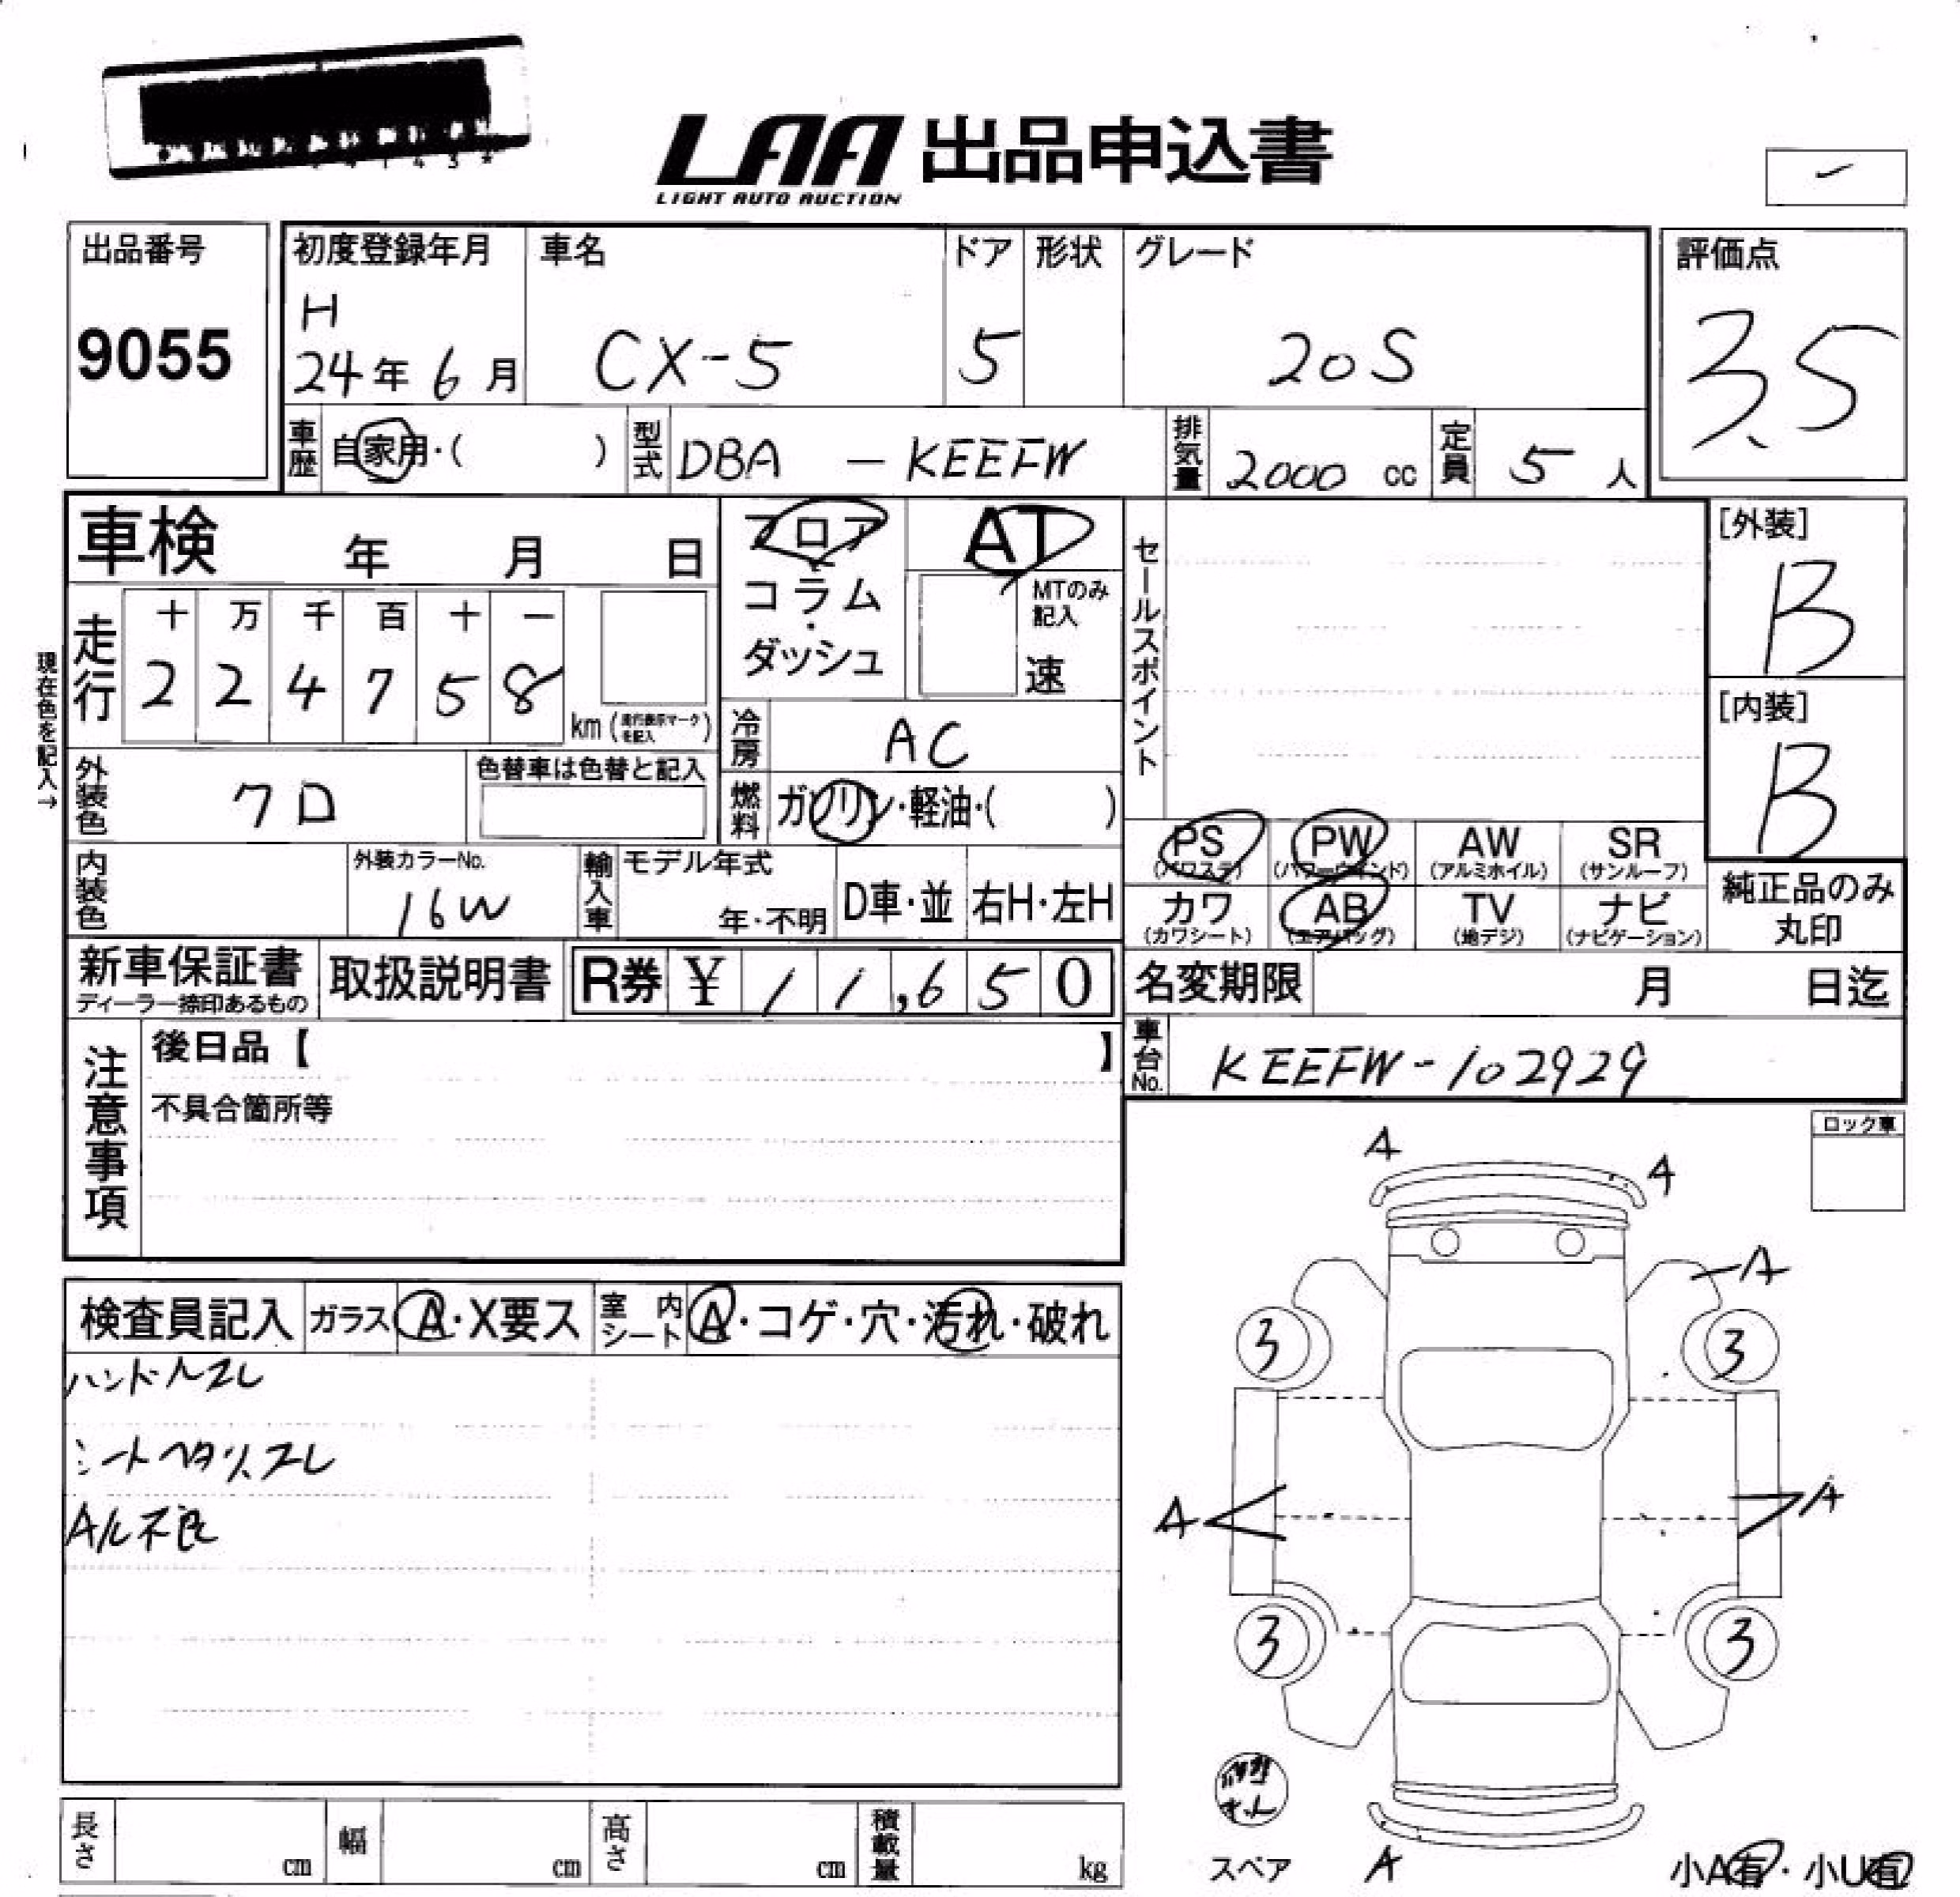 LAA 出品申込書
LIGHT AUTO AUCTION
出品番号
9055
初度登録年月
H
24年 6月
車名
CX-5
ドア
5
形状
グレード
20S
評価点
3.5
車歴 自家用・( )
型式 DBA — KEEFW
排気量 2000 cc
定員 5 人
車検 年 月 日
フロア
コラム
・
ダッシュ
AT
MTのみ
記入
速
セールスポイント
[外装]
B
[内装]
B
現在色を記入→
走行
十 万 千 百 十 一
2 2 4 7 5 8
km (走行表示マークを記入)
冷房 AC
外装色 クロ
色替車は色替と記入
燃料 ガソリン・軽油・( )
PS PW AW SR
(パワステ) (パワーウインド) (アルミホイル) (サンルーフ)
カワ AB TV ナビ
(カワシート) (エアバッグ) (地デジ) (ナビゲーション)
純正品のみ
丸印
内装色
外装カラーNo.
16W
輸入車
モデル年式
年・不明
D車・並
右H・左H
新車保証書
ディーラー捺印あるもの
取扱説明書
R券 ¥ 11,650
名変期限 月 日迄
車台No. KEEFW-102929
注意事項
後日品【 】
不具合箇所等
ロック車
A
A
A
3 3
A A
3 3
検査員記入 ガラス A・X要ス
室内シート A・コゲ・穴・汚れ・破れ
ハンドルスレ
シートヘタリ、スレ
A/C不良
スペア
A
小A有・小U有
長さ cm
幅 cm
高さ cm
積載量 kg